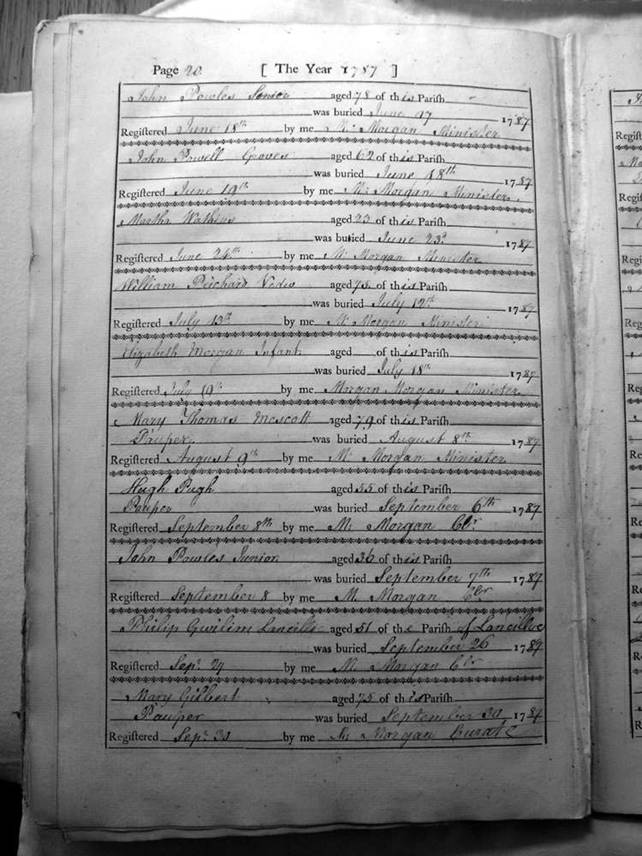 Page 20 [ The Year 1787 ]
John Powles Senior aged 78 of this Parish
was buried June 17 1787
Registered June 18th by me M. Morgan Minister
John Powell Groves aged 62 of this Parish
was buried June 18th 1787
Registered June 19th by me M. Morgan Minister
Martha Watkins aged 23 of this Parish
was buried June 23d 1787
Registered June 24th by me M. Morgan Minister
William Prichard aged 75 of this Parish
was buried July 12th 1787
Registered July 13th by me M. Morgan Minister
Elizabeth Morgan Infant aged of this Parish
was buried July 18th 1787
Registered July 19th by me Morgan Morgan Minister
Mary Thomas Mescott aged 79 of this Parish
Pauper was buried August 8th 1787
Registered August 9th by me M. Morgan Minister
Hugh Pugh aged 55 of this Parish
Pauper was buried September 6th 1787
Registered September 8th by me M. Morgan Clr
John Powles Junior aged 36 of this Parish
was buried September 7th 1787
Registered September 8 by me M. Morgan Clr
Philip Gwilim Lancillo aged 51 of the Parish of Lancilloe
was buried September 26 1787
Registered Sepr. 29 by me M. Morgan Clr
Mary Gilbert aged 75 of this Parish
Pauper was buried September 30 1787
Registered Sepr. 30 by me M. Morgan Curate